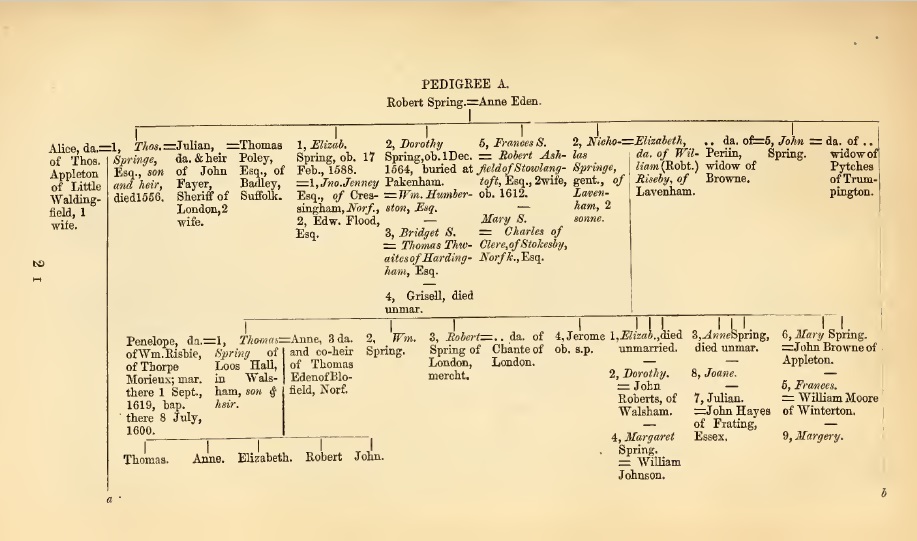 PEDIGREE A.
Robert Spring.=Anne Eden.
Alice, da.=1,
of Thos.
Appleton
of Little
Walding-
field, 1
wife.
Thos.=
Springe,
Esq., son
and heir,
died1556.
Julian,
da. & heir
of John
Fayer,
Sheriff of
London,2
wife.
=Thomas
Poley,
Esq., of
Badley,
Suffolk.
1, Elizab.
Spring, ob. 17
Feb., 1588.
=1,Jno.Jenney
Esq., of Cres-
singham, Norf.,
2, Edw. Flood,
Esq.
2, Dorothy
Spring,ob.1Dec.
1564, buried at
Pakenham.
=Wm. Humber-
ston, Esq.
—
3, Bridget S.
= Thomas Thw-
aites of Harding-
ham, Esq.
—
4, Grisell, died
unmar.
5, Frances S.
= Robert Ash-
fieldof Stowlang-
toft, Esq., 2wife,
ob. 1612.
—
Mary S.
= Charles of
Clere,of Stokesby,
Norfk., Esq.
2, Nicho-=
las
Springe,
gent., of
Laven-
ham, 2
sonne.
Elizabeth,
da. of Wil-
liam (Robt.)
Riseby, of
Lavenham.
.. da. of=
Periin,
widow of
Browne.
5, John =
Spring.
da. of ..
widow of
Pytches
of Trum-
pington.
2 I
Penelope, da.=1,
of Wm. Risbie,
of Thorpe
Morieux; mar.
there 1 Sept.,
1619, bap.
there 8 July,
1600.
Thomas=
Spring of
Loos Hall,
in Wals-
ham, son &
heir.
Anne, 3 da.
and co-heir
of Thomas
EdenofBlo-
field, Norf.
2, Wm.
Spring.
3, Robert=
Spring of
London,
mercht.
.. da. of
Chante of
London.
4, Jerome
ob. s.p.
1, Elizab.,died
unmarried.
—
2, Dorothy.
= John
Roberts, of
Walsham.
—
4, Margaret
Spring.
= William
Johnson.
3, AnneSpring,
died unmar.
—
8, Joane.
—
7, Julian.
=John Hayes
of Frating,
Essex.
6, Mary Spring.
=John Browne of
Appleton.
—
5, Frances.
= William Moore
of Winterton.
—
9, Margery.
Thomas. Anne. Elizabeth. Robert John.
a b